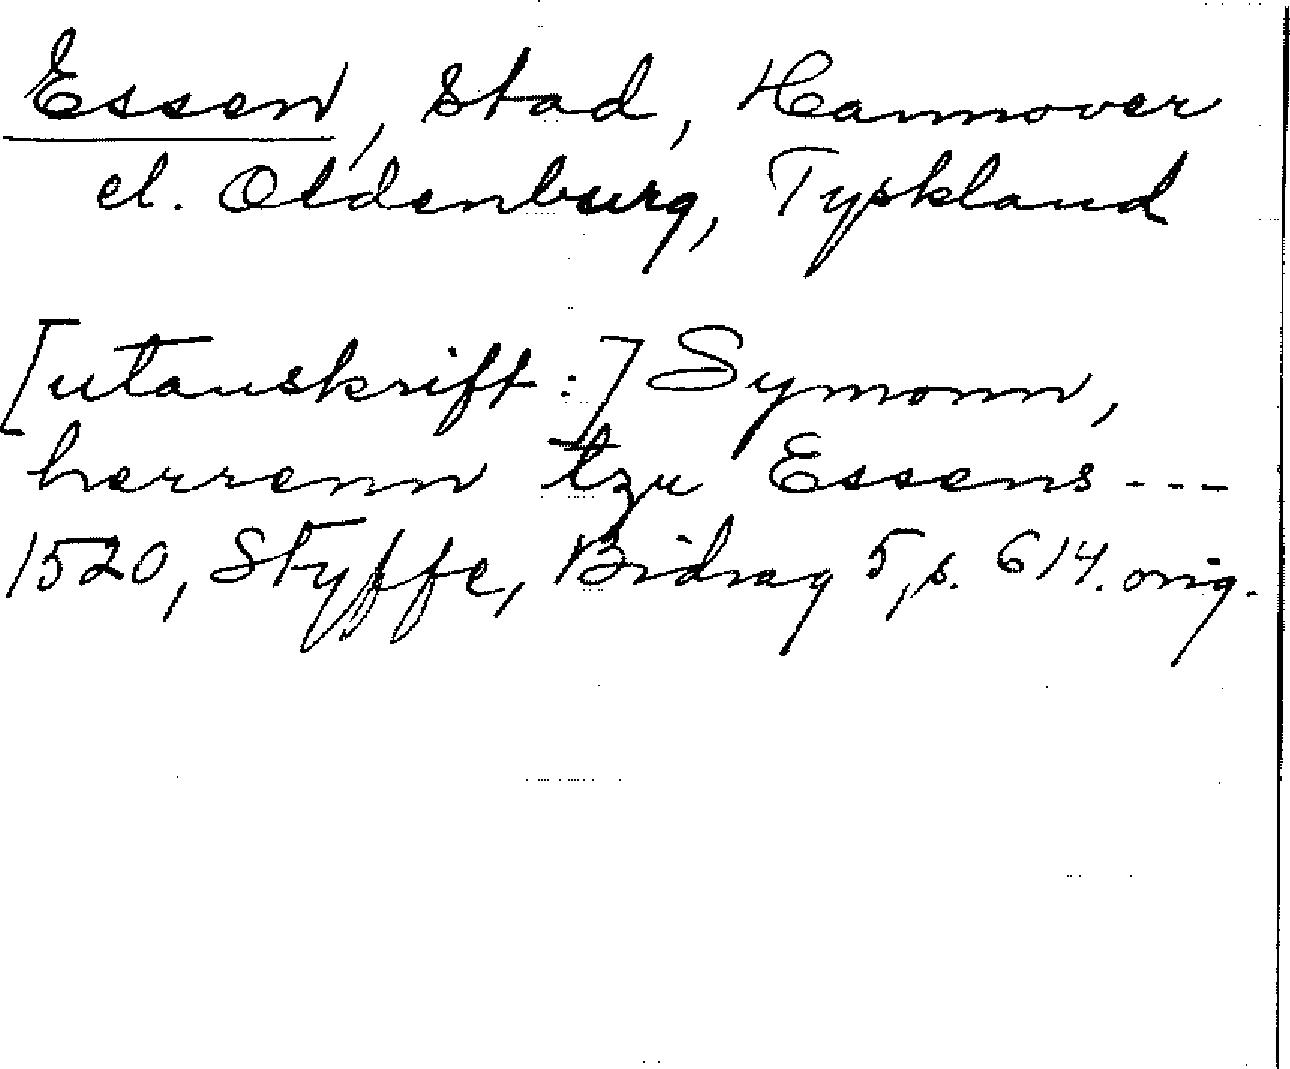 Essen, stad, Hannover
el. Oldenburg, Tyskland
[utanskrift:] Symonn,
herrenn tzu Essens ---
1520, Styffe, Bidrag 5, s. 614. orig.